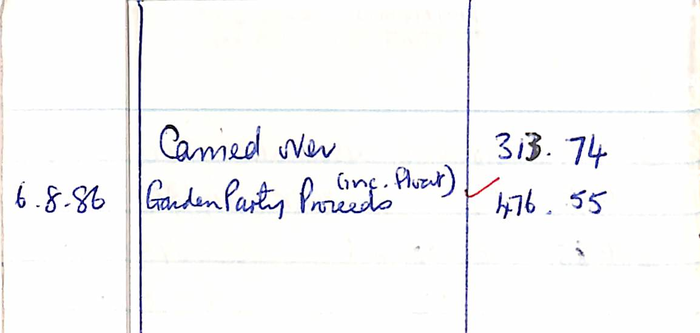 Carried over 313.74
6.8.86 Garden Party Proceeds (inc. float) 476.55